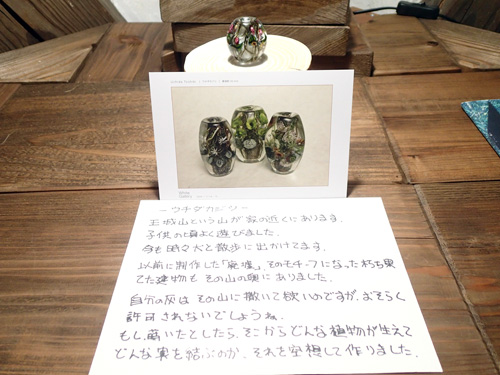 ーウチダカジツー
玉城山という山が家の近くにあります。
子供の頃よく遊びました。
今も時々犬と散歩に出かけてます。
以前に制作した「廃墟」、そのモチーフになった朽ち果
てた建物も その山の奥にありました。
自分の灰は その山に撒いて欲しいのですが、おそらく
許可されないでしょうね。
もし蒔いたとしたら、そこからどんな植物が生えて
どんな実を結ぶのか、それを空想して作りました。